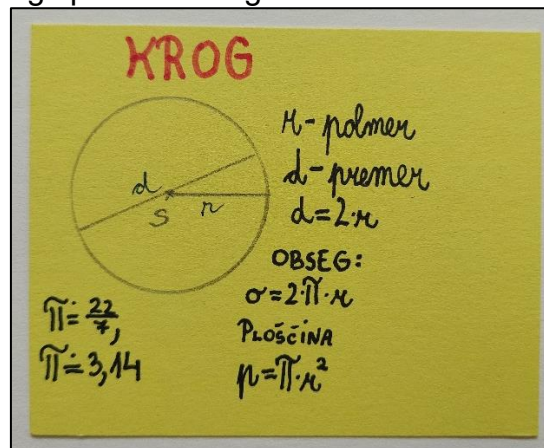 KROG
d
S r
r - polmer
d - premer
d = 2·r
OBSEG:
o = 2·π·r
PLOŠČINA
p = π·r²
π ≐ 22/7,
π ≐ 3,14